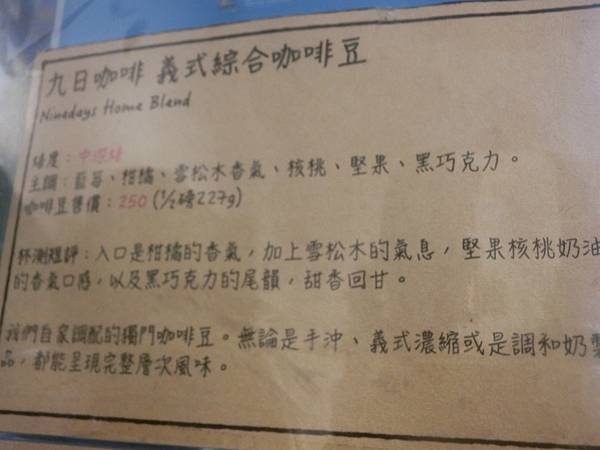 九日咖啡 義式綜合咖啡豆
Ninedays Home Blend
焙度：中深焙
主調：藍莓、柑橘、雪松木香氣、核桃、堅果、黑巧克力。
咖啡豆售價：250 (1/2磅227g)
杯測短評：入口是柑橘的香氣，加上雪松木的氣息，堅果核桃奶油
的香氣口感，以及黑巧克力的尾韻，甜香回甘。
我們自家調配的獨門咖啡豆。無論是手沖、義式濃縮或是調和奶製
品，都能呈現完整層次風味。